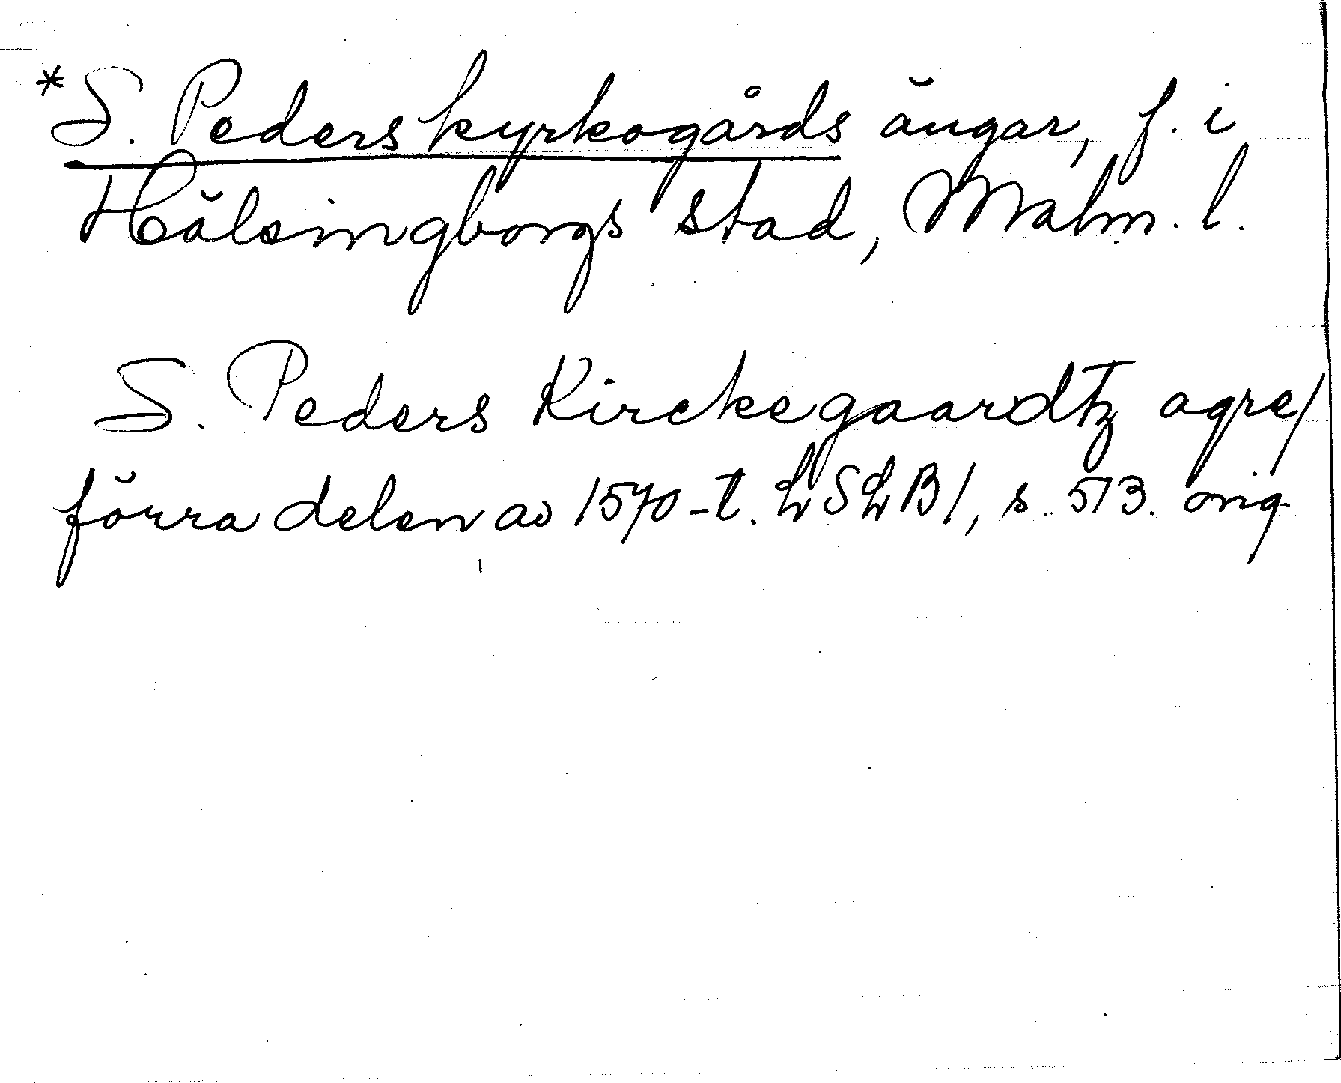 *S. Peders kyrkogårds ängar, f. i
Hälsingborgs stad, Malm. l.
S. Peders Kirckegaardtz agre/
förra delen av 1570-t. LSLB1, s. 513. orig